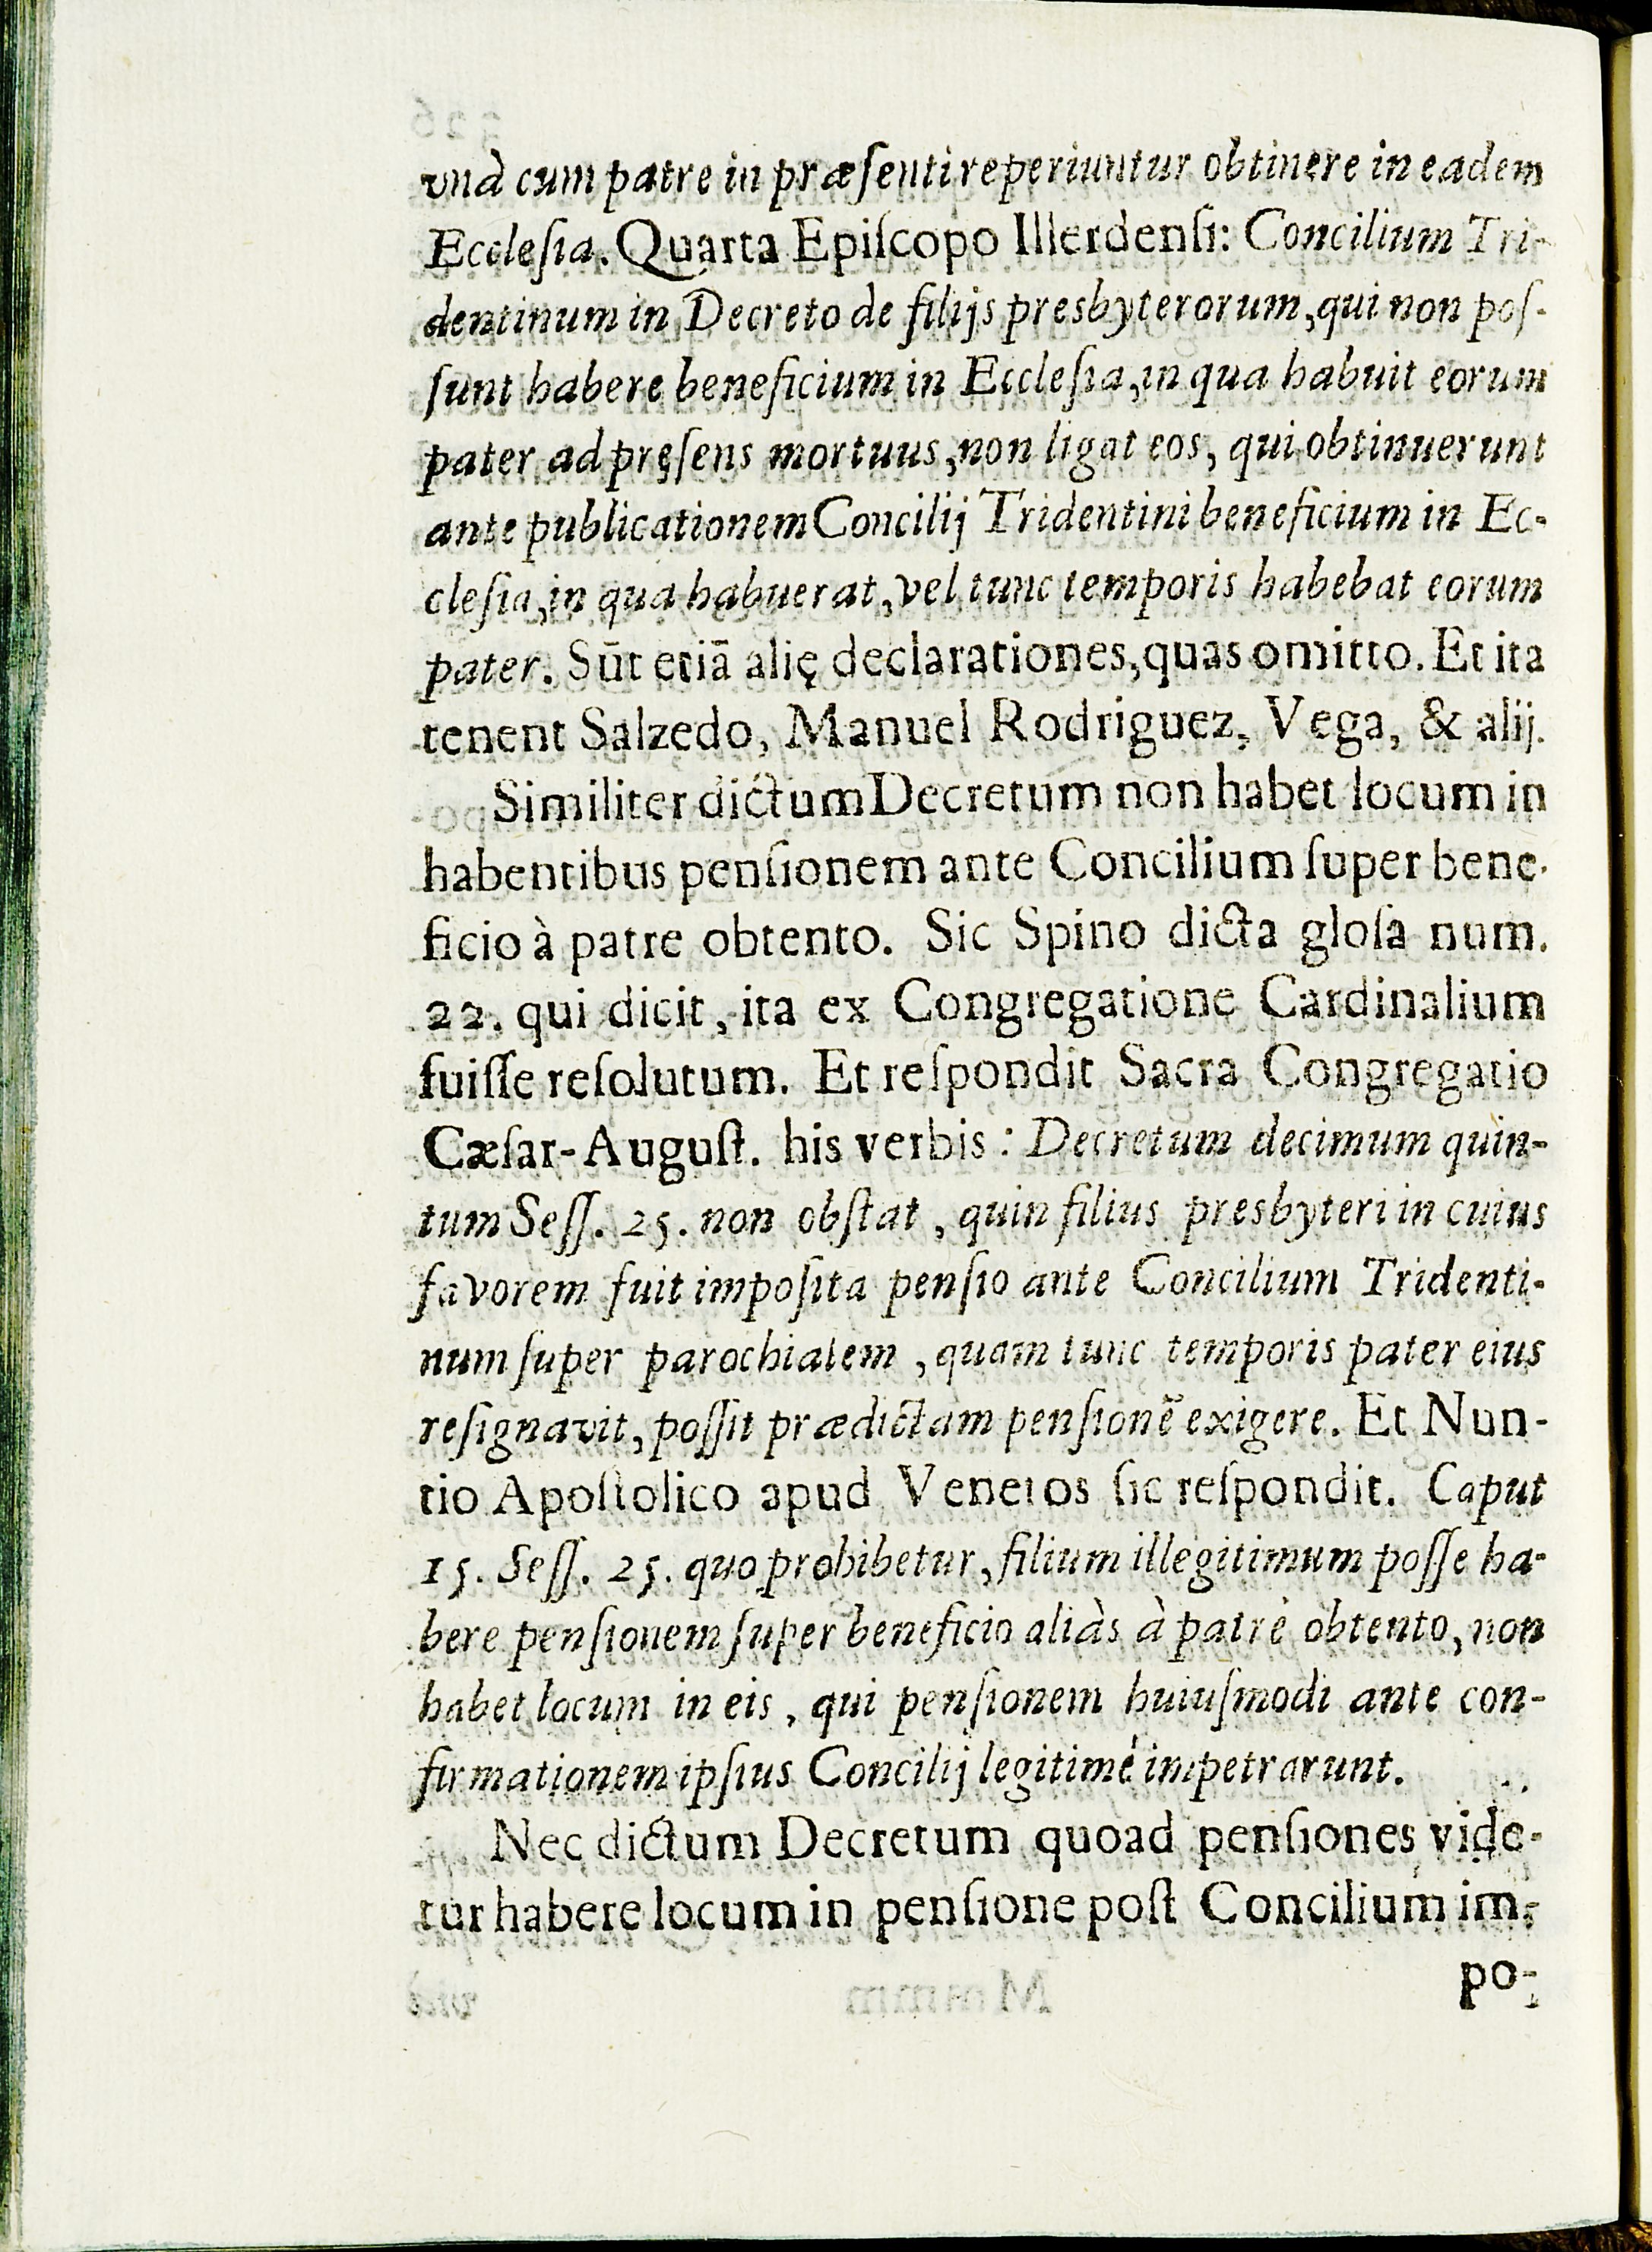 vnà cum patre in præſenti reperiuntur obtinere in eadem
Eccleſia. Quarta Epiſcopo Illerdenſi: Concilium Tri-
dentinum in Decreto de filijs presbyterorum, qui non poſ-
ſunt habere beneficium in Eccleſia, in qua habuit eorum
pater ad pręſens mortuus, non ligat eos, qui obtinuerunt
ante publicationem Concilij Tridentini beneficium in Ec-
cleſia, in qua habuerat, vel tunc temporis habebat eorum
pater. Sūt etiā alię declarationes, quas omitto. Et ita
tenent Salzedo, Manuel Rodriguez, Vega, & alij.
Similiter dictum Decretum non habet locum in
habentibus penſionem ante Concilium ſuper bene-
ficio à patre obtento. Sic Spino dicta gloſa num.
22. qui dicit, ita ex Congregatione Cardinalium
fuiſſe reſolutum. Et reſpondit Sacra Congregatio
Cæſar-Auguſt. his verbis: Decretum decimum quin-
tum Seſſ. 25. non obſtat, quin filius presbyteri in cuius
favorem fuit impoſita penſio ante Concilium Tridenti-
num ſuper parochialem, quam tunc temporis pater eius
reſignavit, poſſit prædictam penſionē exigere. Et Nun-
tio Apoſtolico apud Venetos ſic reſpondit. Caput
15. Seſſ. 25. quo prohibetur, filium illegitimum poſſe ha-
bere penſionem ſuper beneficio aliàs à patre obtento, non
habet locum in eis, qui penſionem huiuſmodi ante con-
firmationem ipſius Concilij legitimé impetrarunt.
Nec dictum Decretum quoad penſiones vide-
tur habere locum in penſione poſt Concilium im-
po-